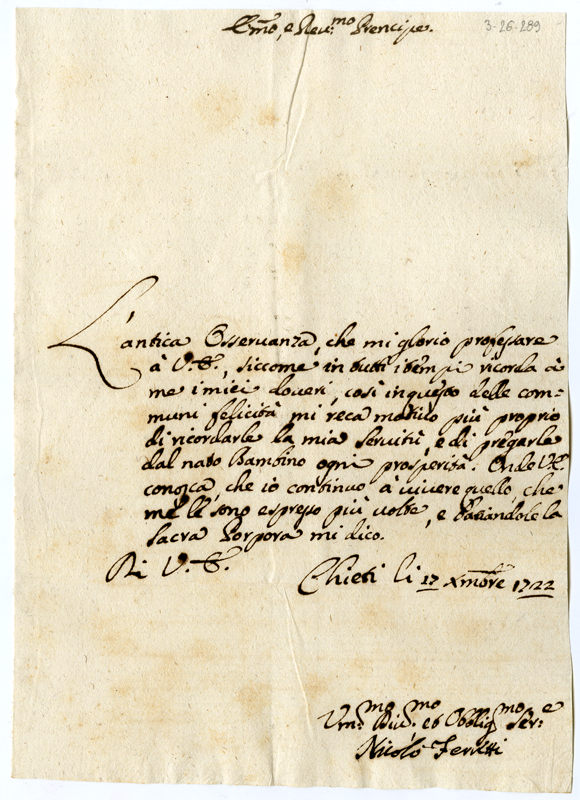 Em̃o, e Reu.mo Prencipe.
3-26-289
L'antica Osseruanza, che mi glorio professare
à V.E., siccome in tutti i tempi ricorda à
me i miei doueri, così in questo delle com=
muni felicità mi reca motiuo più proprio
di ricordarle la mia seruitù, e di pregarle
dal nato Bambino ogni prosperità. Onde V.E.
conosca, che io continuo à uiuere quello, che
me le sono espresso più uolte, e baciandole la
Sacra Porpora mi dico.
Di V.E.
Chieti li 17 Xmbre 1722
Vm.mo Diu.mo et Obblig.mo Ser.e
Nicolò Ferretti